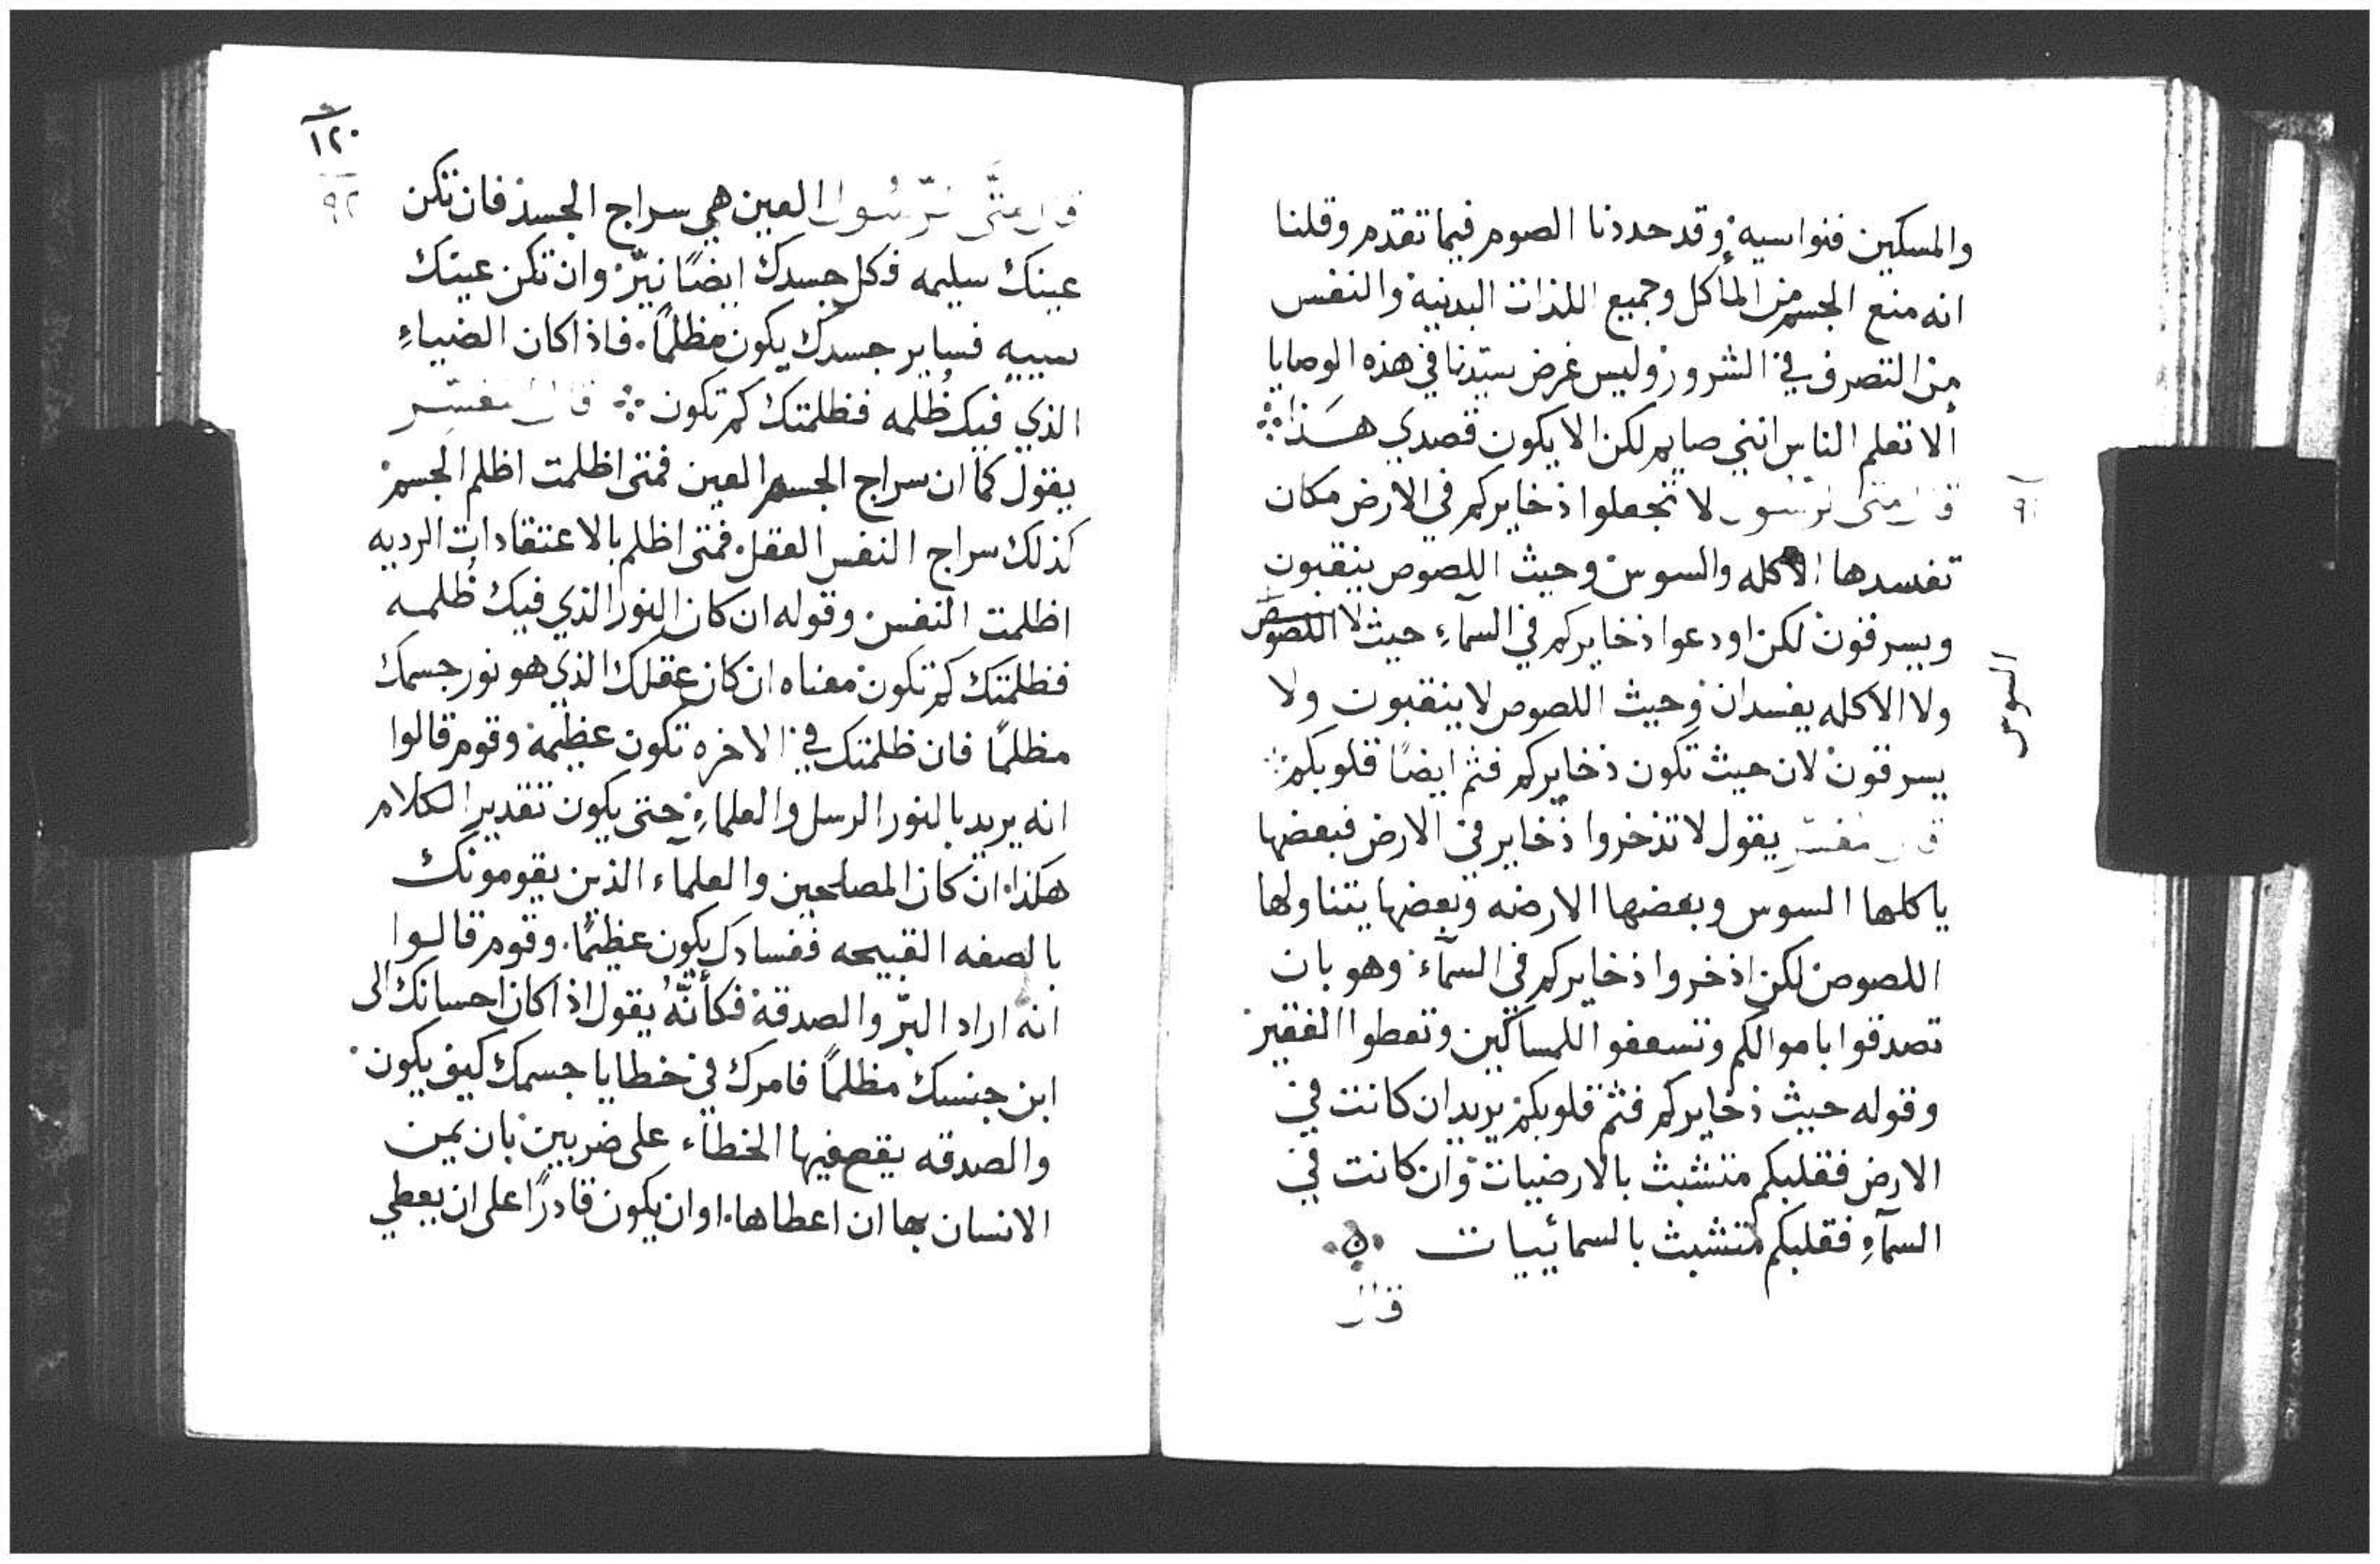 والمسكين فنواسيه وقد حددنا الصوم فيما تقدم وقلنا
انه منع الجسم من المأكل وجميع اللذات البدنية والنفس
من التصرف في الشرور وليس غرض سيّدنا في هذه الوصايا
ألا تعلم الناس انني صايم لكن الا يكون قصدي هـذا
قال متى الرسول لا تجعلوا ذخايركم في الارض مكان
٩١
تفسدها الاكله والسوس وحيث اللصوص ينقبون
ويسرقون لكن اودعوا ذخايركم في السمآءِ حيث لا اللصوص
السوس
ولا الاكله يفسدان وحيث اللصوص لا ينقبون ولا
يسرقون لان حيث تكون ذخايركم فثم ايضًا قلوبكم
قال المفسر يقول لا تذخروا ذخاير في الارض فبعضها
ياكلها السوس وبعضها الارضه وبعضها يتناولها
اللصوص لكن اذخروا ذخايركم في السمآء وهو بان
تصدقوا باموالكم وتسعفوا اللمساكين وتعطوا الفقير
وقوله حيث ذخايركم فثم قلوبكم يريد ان كانت في
الارض فقلبكم متشبث بالارضيات وان كانت في
السمآءِ فقلبكم متشبث بالسمائييات
قال
١٢٠
٩٢
قال متَّى الرّسُول العين هي سراج الجسد فان تكن
عينك سليمه فكل جسدك ايضًا نيّر وان تكن عينك
سييه فساير جسدك يكون مظلمًا. فاذا كان الضياءِ
الذي فيك ظُلمه فظلمتك كم تكون قال المفسّـر
يقول كما ان سراج الجسم العين فمتى اظلمت اظلم الجسم
كذلك سراج النفس العقل فمتى اظلم بالاعتقادات الرديه
اظلمت النفس وقوله ان كان النور الذي فيك ظُلمه
فظلمتك كم تكون معناه ان كان عقلك الذي هو نور جسمك
مظلمًا فان ظلمتك في الاخره تكون عظيمة وقوم قالوا
انه يريد بالنور الرسل والعلمآءِ حتى يكون تقدير الكلام
هكذا ان كان المصلحين والعلمآء الذين يقومونك
بالصفه القبيحه ففسادك يكون عظيمًا. وقوم قالوا
انه اراد البّر والصدقة فكأنَّهُ يقول اذا كان احسانك الى
ابن جنسك مظلمًا فامرك في خطايا جسمك كيف يكون
والصدقه يقع فيها الخطاء على ضربين بان يمن
الانسان بها ان اعطاها. اوان يكون قادرًا على ان يعطي